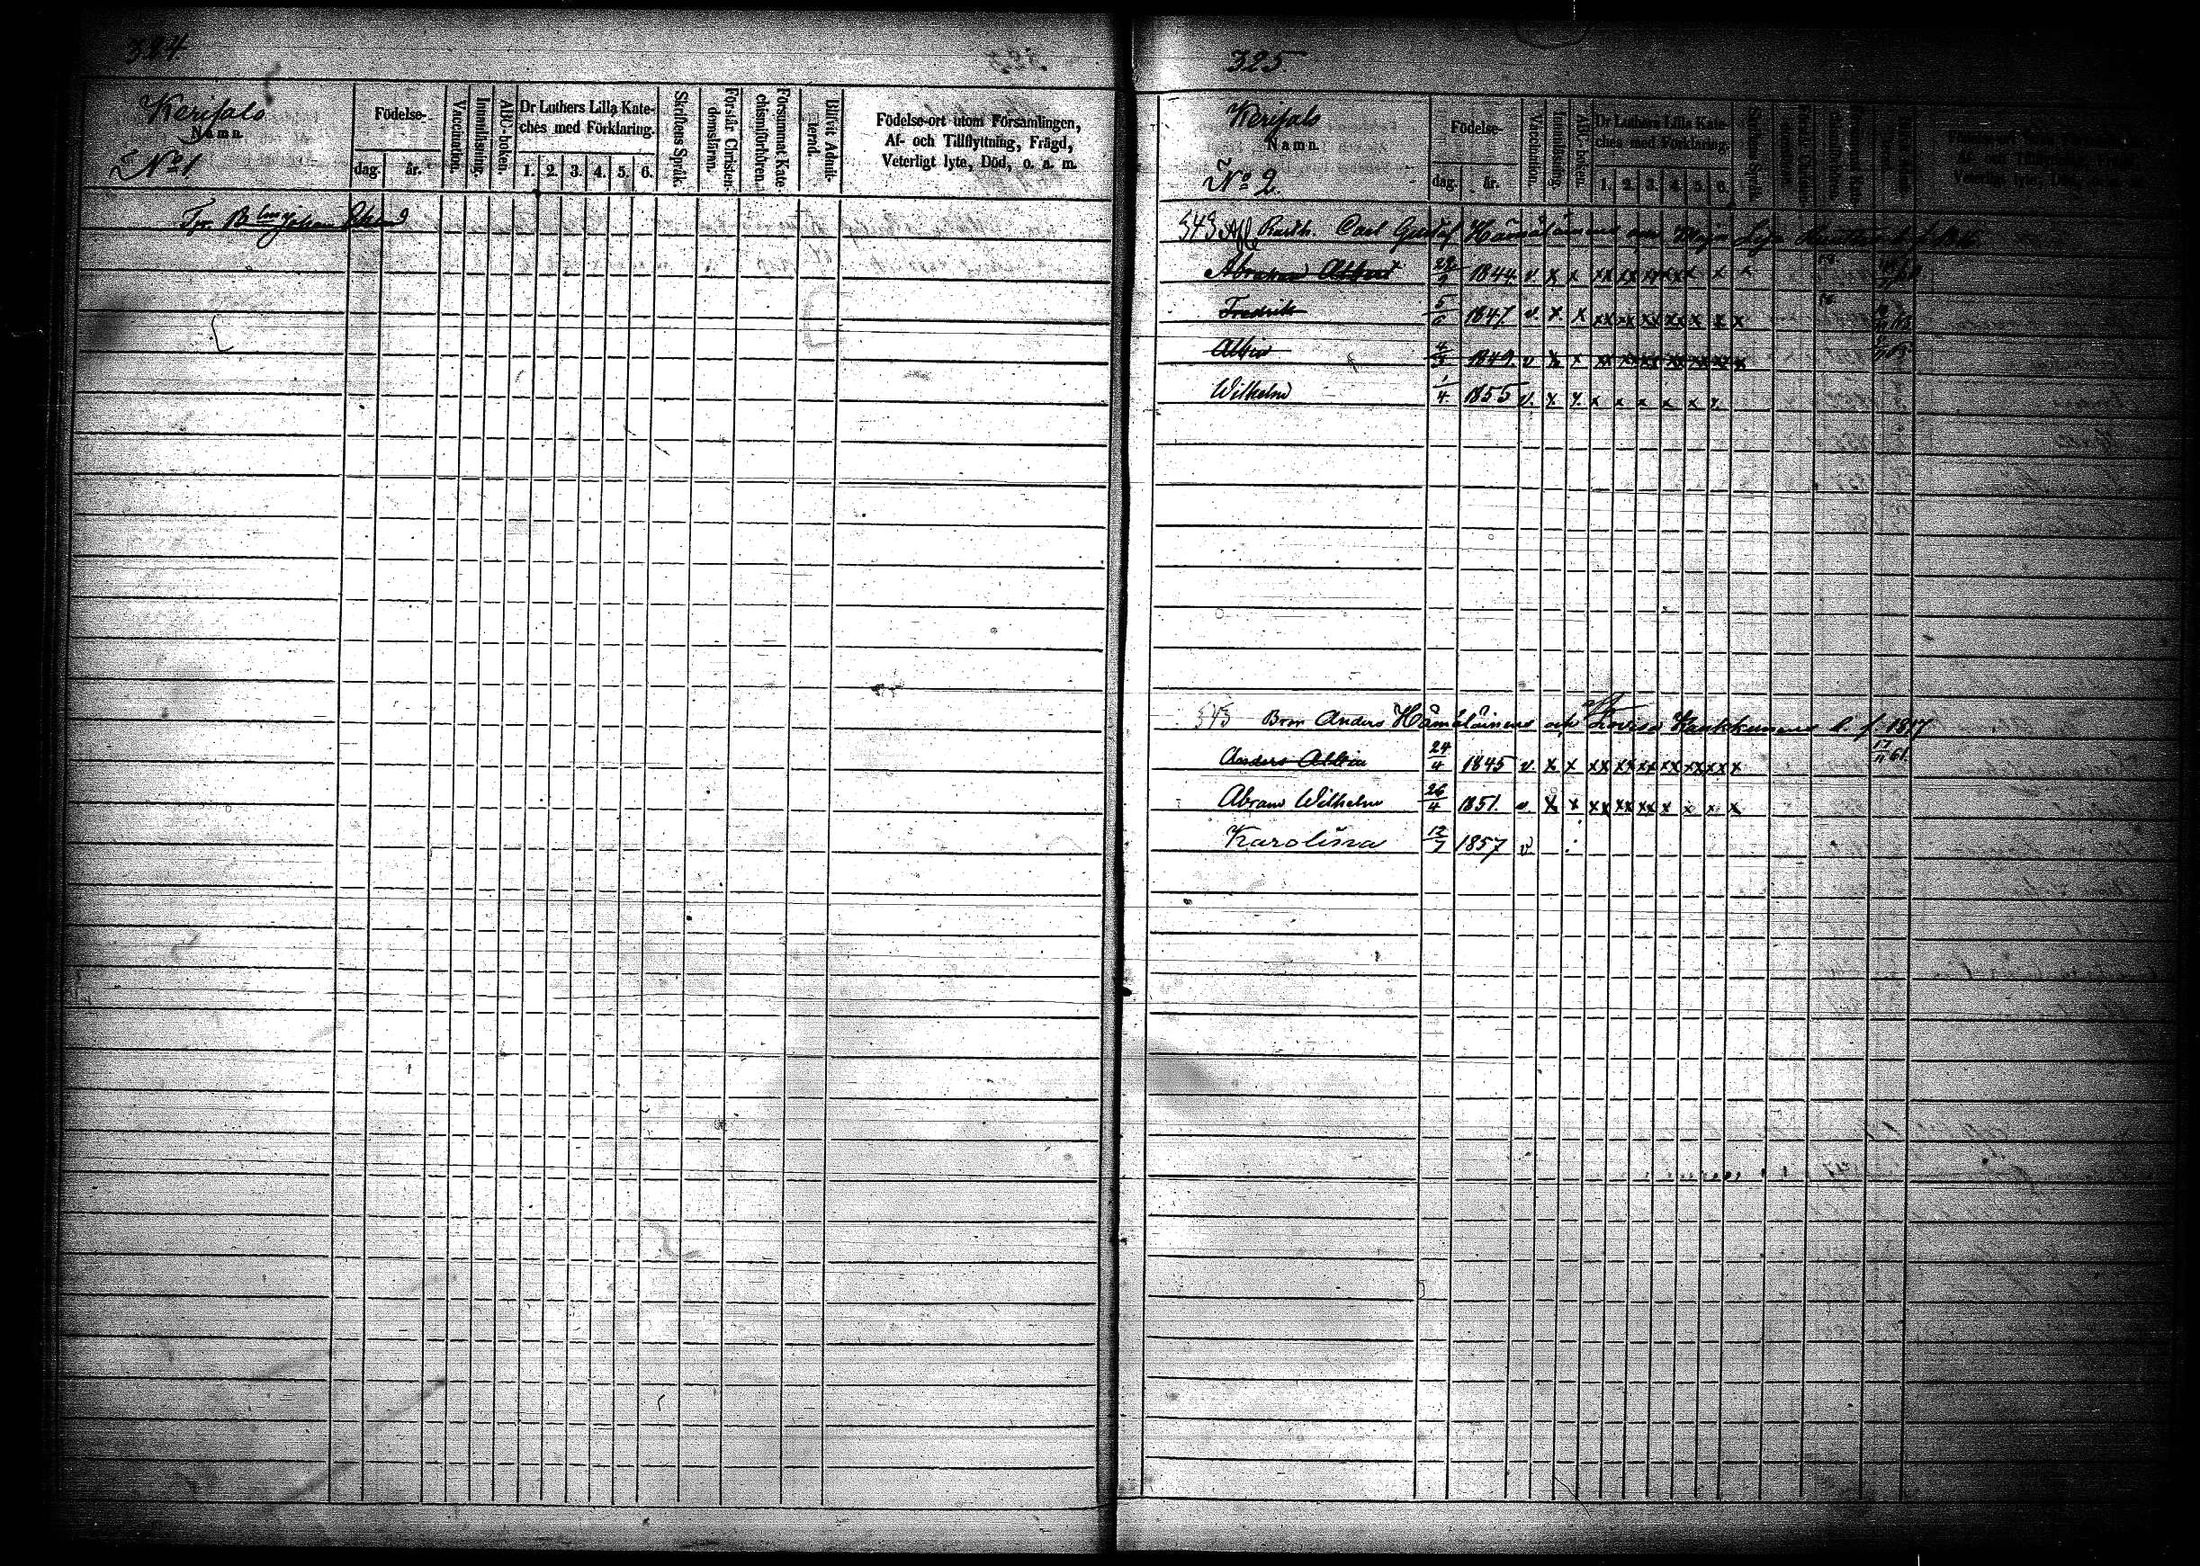 324.
Kerisalo
Namn.
No 1
Födelse-
dag. år.
Vaccination.
Innanläsning.
ABC-boken.
Dr Luthers Lilla Kate-
ches med Förklaring.
1. 2. 3. 4. 5. 6.
Skriftens Språk.
Förstår Christen-
domsläran.
Försummat Kate-
chismiförhören.
Blifvit Admit-
terad.
Födelse-ort utom Församlingen,
Af- och Tillflyttning, Frägd,
Veterligt lyte, Död, o. a. m.
325.
Kerisalo
Namn.
No 2.
Födelse-
dag. år.
Vaccination.
Innanläsning.
ABC-boken.
Dr Luthers Lilla Kate-
ches med Förklaring.
1. 2. 3. 4. 5. 6.
543 Carl Gustaf Hämäläinens
Abraham 1844 v x x xx xx xx xx x x
Fredrik 5/6 1847. v x x xx xx xx xx x x x
Albin 1849. v x x xx xx xx xx xx xx x
Wilhelm 1/4 1855 v. x x x x x x x x
545 Bror Anders Hämäläinens och Lovisa Kaukkunens b. f. 1817
Anders Albin 24/4 1845 v. x x xx xx xx xx xx xx x 17/11 61.
Abram Wilhelm 26/4 1851. v x x xx xx xx x x x x
Karolina 12/7 1857 v